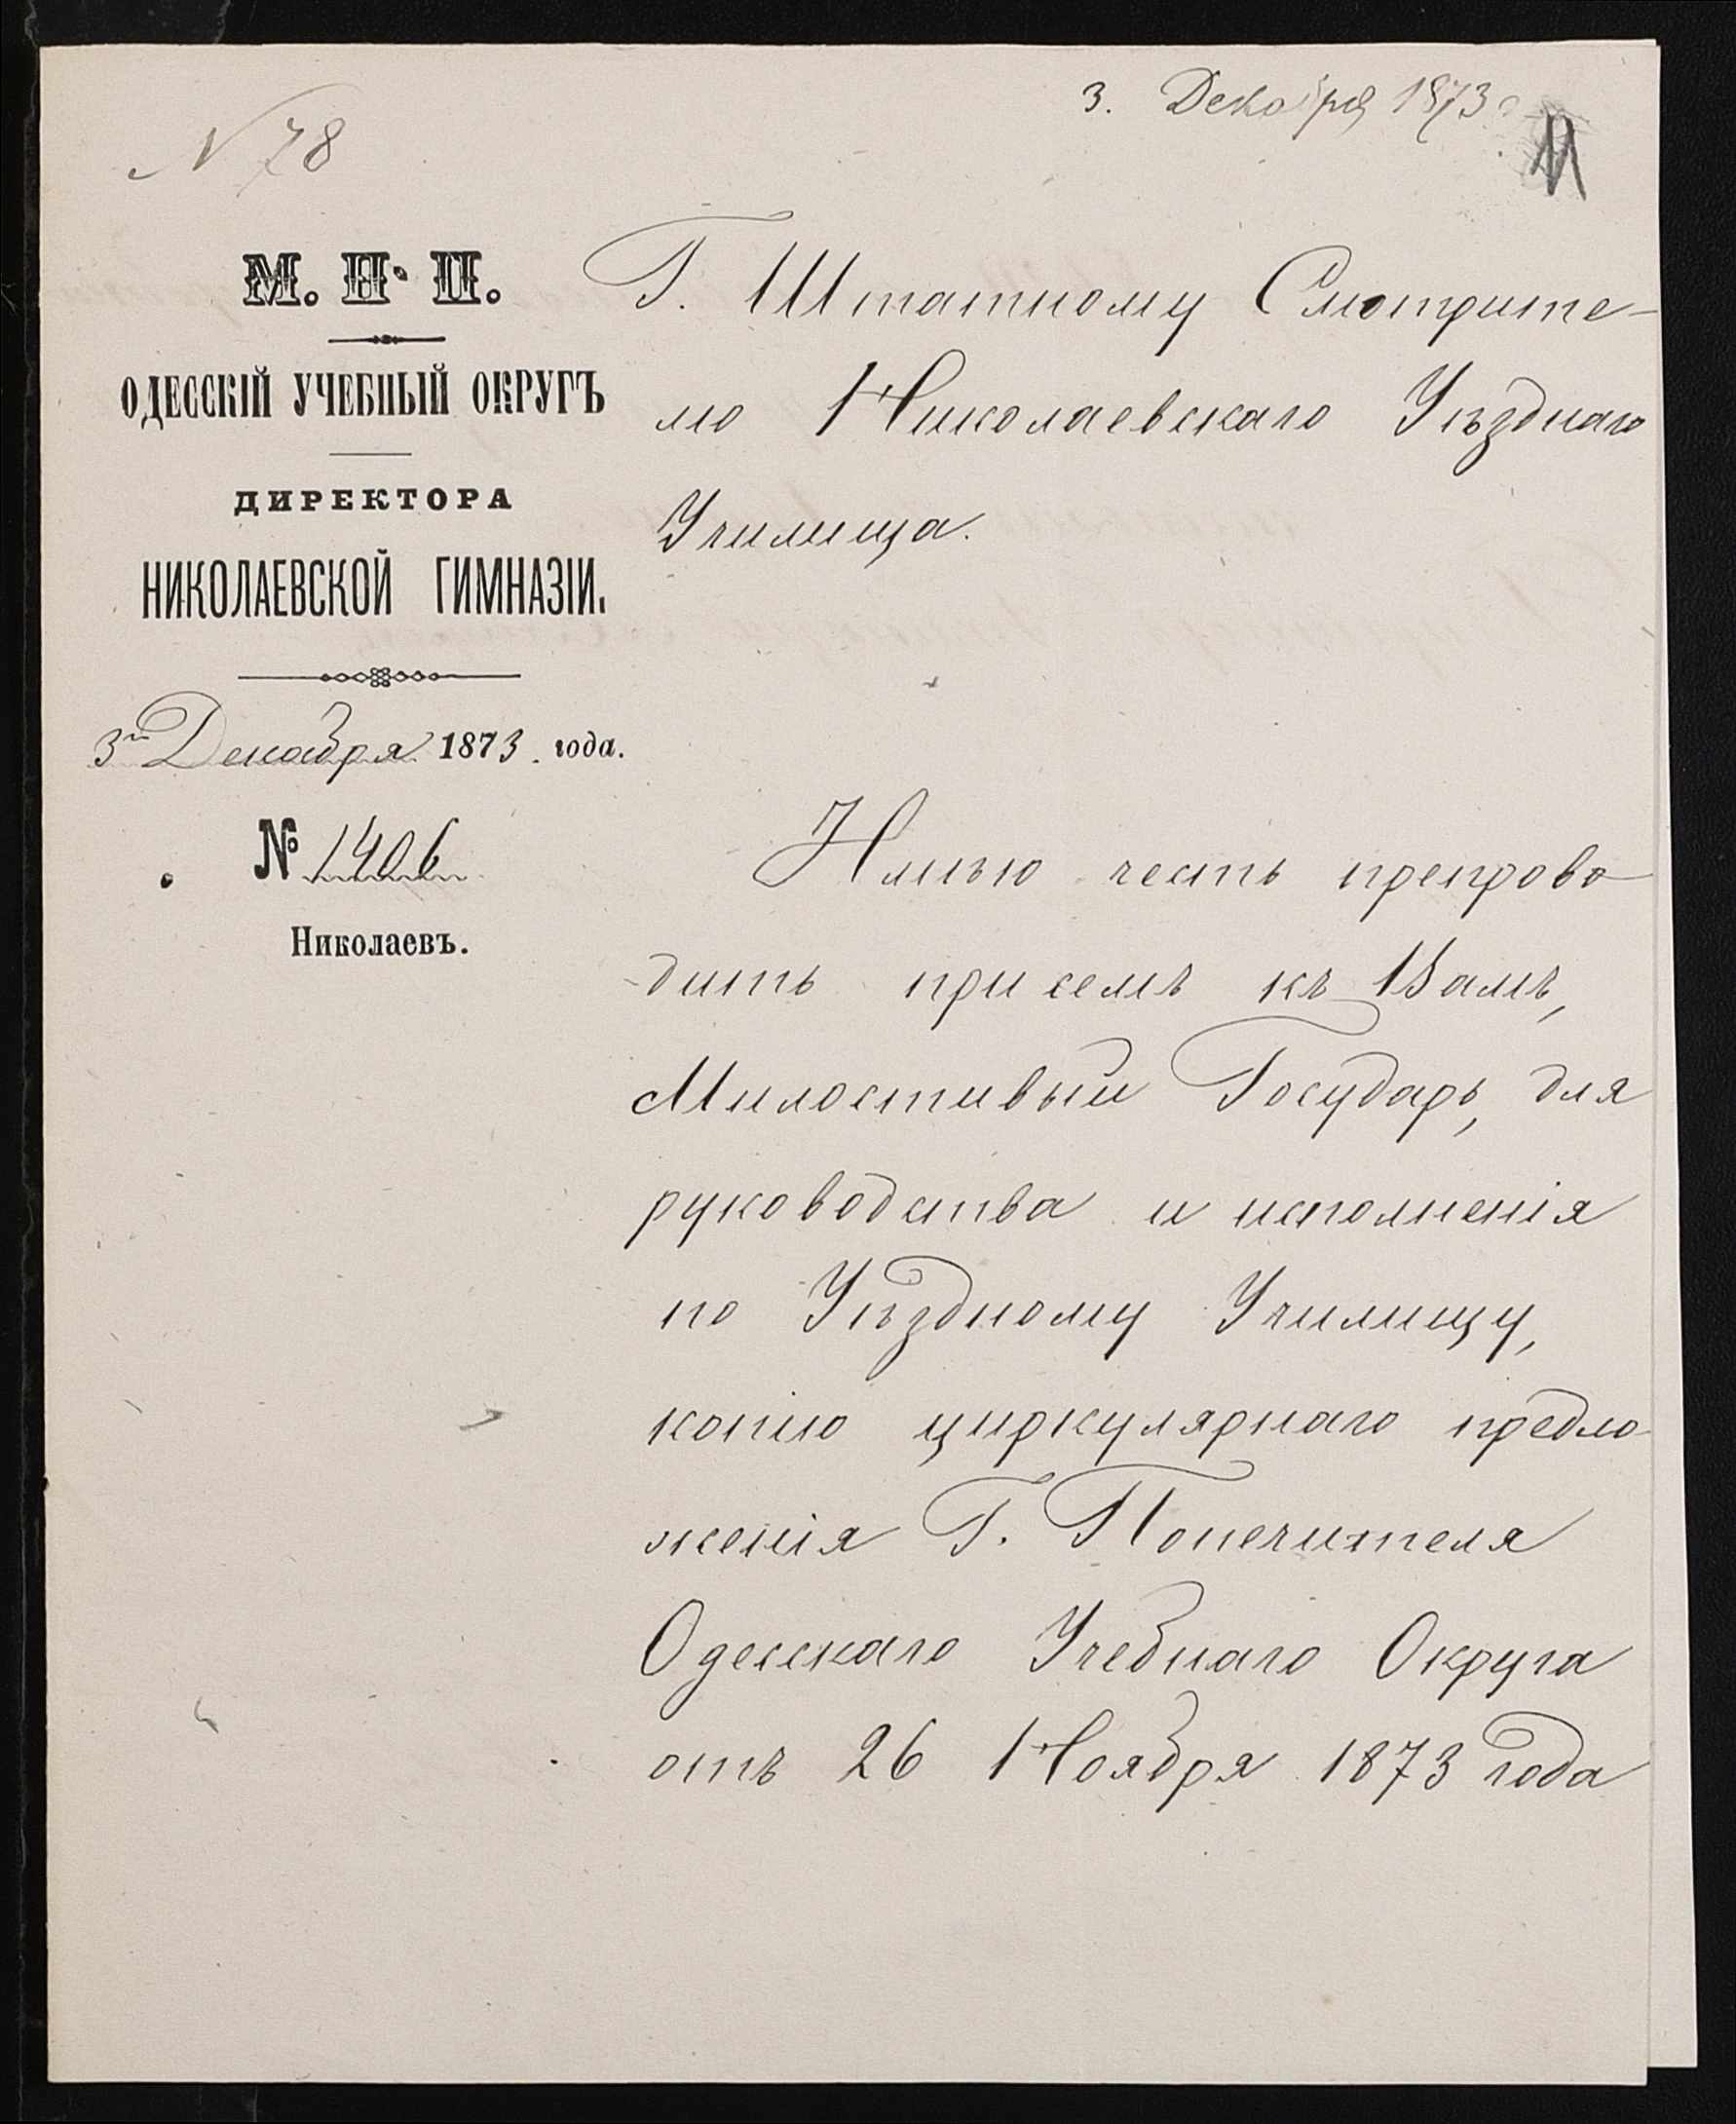 3. Декабря 1873
11
N 78
М. Н. П.
ОДЕССКІЙ УЧЕБНЫЙ ОКРУГЪ
ДИРЕКТОРА
НИКОЛАЕВСКОЙ ГИМНАЗІИ.
3го Декабря 1873. года.
№ 1406
Николаевъ.
Г. Штатному Смотрите-
лю Николаевскаго Уѣзднаго
Училища.
Имѣю честь препрово-
дить при семъ къ Вамъ,
Милостивый Государь, для
руководства и исполненія
по Уѣздному Училищу,
копію циркулярнаго предло-
женія Г. Попечителя
Одесскаго Учебнаго Округа
отъ 26 Ноября 1873 года